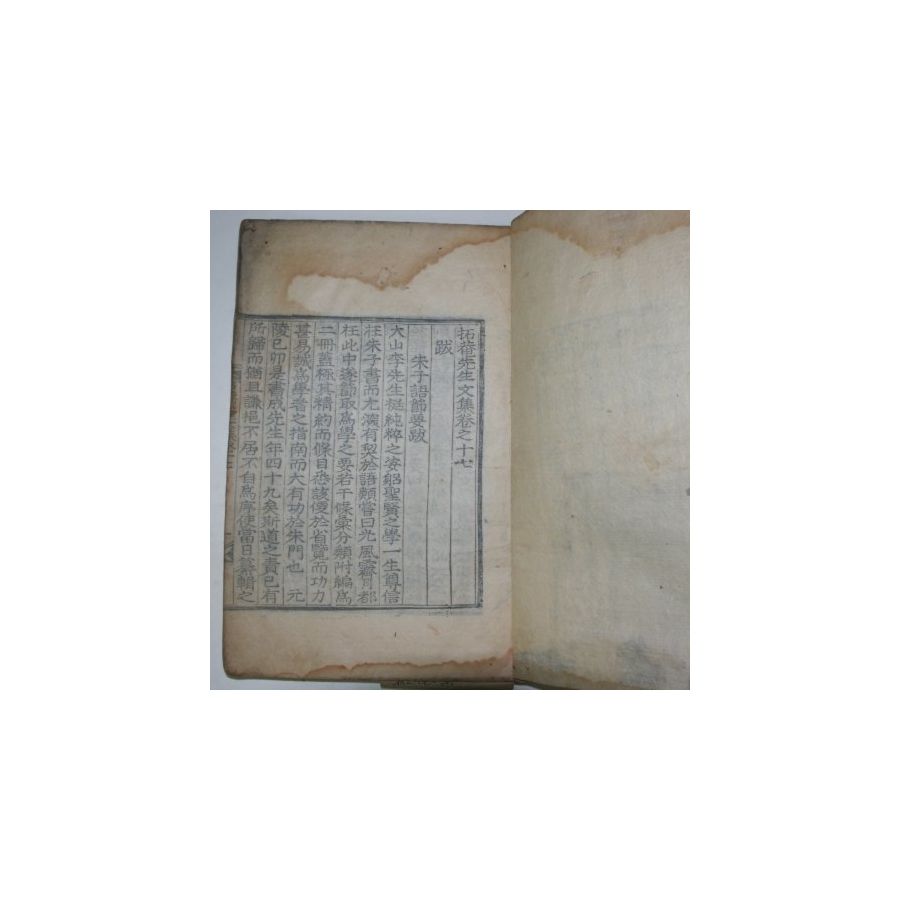 拓菴先生文集卷之十七
跋
朱子語節要跋
大山李先生挺純粹之姿躬聖賢之學一生尊信
在朱子書而尤深有契於語類嘗曰光風霽月都
在此中遂節取爲學之要若干條彙分類附編爲
二冊蓋極其精約而條目悉該便於省覽而功力
甚易誠爲學者之指南而大有功於朱門也 元
陵己卯是書成先生年四十九矣斯道之責已有
所歸而猶且謙挹不居不自爲序使當日纂輯之